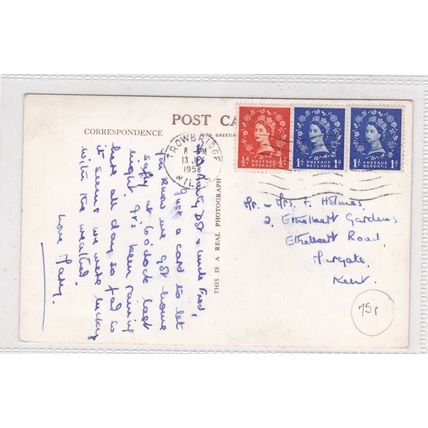 POST CA
CORRESPONDENCE
WITH GREETIN
THIS IS A REAL PHOTOGRAPH
TROWBRIDGE
8 - PM
13
1958
WILTS
½d POSTAGE REVENUE ½d
1d POSTAGE REVENUE 1d
1d POSTAGE REVENUE 1d
Dot & Uncle Fred,
Just a card to let
you know we got home
safely at 10 o'clock last
night. It's been raining
here all day so far so
it seems we were lucky
with the weather.
Love Mary.
Mr. & Mrs. F. Holmes.
2, Ethelbert Gardens
Ethelbert Road,
Margate,
Kent.
75p